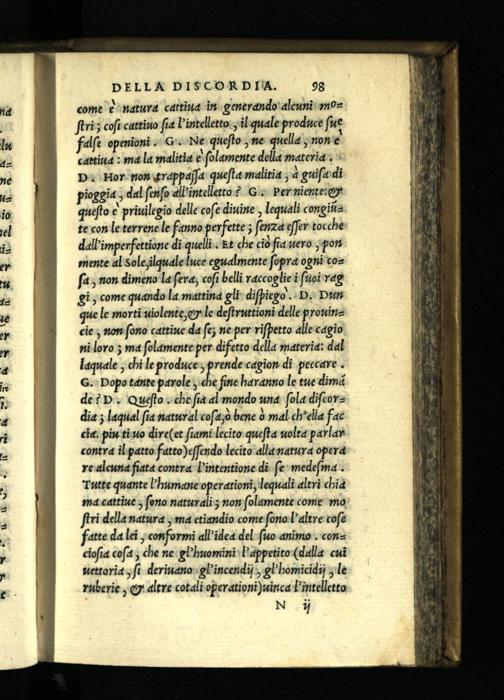 DELLA DISCORDIA. 98
come è natura cattiua in generando alcuni mo=
stri; cosi cattiuo sia l'intelletto, il quale produce sue
false openioni. G. Ne questo, ne quella, non è
cattiua: ma la malitia è solamente della materia.
D. Hor non trappassa questa malitia, à guisa di
pioggia, dal senso all'intelletto? G. Per niente: &
questo è priuilegio delle cose diuine, lequali congiũ=
te con le terrene le fanno perfette; senza esser tocche
dall'imperfettione di quelli. Et che ciò sia uero, pon
mente al Sole, ilquale luce egualmente sopra ogni co=
sa, non dimeno la sera, cosi belli raccoglie i suoi rag
gi, come quando la mattina gli dispiegò. D. Dun
que le morti uiolente, & le destruttioni delle prouin=
cie, non sono cattiue da se; ne per rispetto alle cagio
ni loro; ma solamente per difetto della materia: dal
laquale, chi le produce, prende cagion di peccare.
G. Dopo tante parole, che fine haranno le tue dimã
de? D. Questo. che sia al mondo una sola discor=
dia; laqual sia natural cosa, ò bene ò mal ch'ella fac
cia. piu ti uo dire (et siami lecito questa uolta parlar
contra il patto fatto) essendo lecito alla natura opera
re alcuna fiata contra l'intentione di se medesma.
Tutte quante l'humane operationi, lequali altri chia
ma cattiue, sono naturali; non solamente come mo
stri della natura, ma etiandio come sono l'altre cose
fatte da lei, conformi all'idea del suo animo. con=
ciosia cosa, che ne gl'huomini l'appetito (dalla cui
uettoria, si deriuano gl'incendij, gl'homicidij, le
ruberie, & altre cotali operationi) uinca l'intelletto
N ij